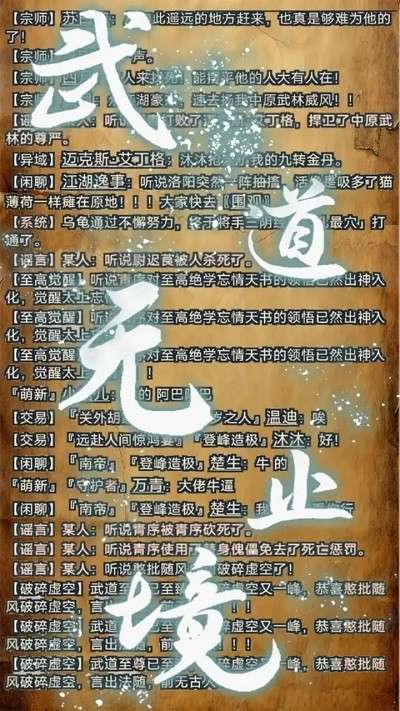 武道无止境
【宗师】苏
此遥远的地方赶来，也真是够难为他的
了！
【宗师】
声。
【宗师】四
人来
他的人大有人在！
【宗师】
湖豪
中原武林威风！！
人：听说
打败了
艾丁格，捍卫了中原武
林的尊严。
【异域】迈克斯·艾丁格：沐沐抢
我的九转金丹。
【闲聊】江湖逸事：听说洛阳突然一阵抽搐，活像是吸多了猫
薄荷一样瘫在原地！！！大家快去【围观】
【系统】乌龟通过不懈努力，终于将手三阴经
最穴」打
通了。
【谣言】某人：听说尉迟莨被人杀死了。
【至高觉醒】听说青序对至高绝学忘情天书的领悟已然出神入
化，觉醒太上忘
【至高觉醒】
对至高绝学忘情天书的领悟已然出神入
化，觉醒太上
【至高觉醒】
对至高绝学忘情天书的领悟已然出神入
化，觉醒太上
『萌新』小
的 阿巴阿巴
【交易】『关外胡
岁之人』温迪：唉
【交易】『远赴人间惊鸿宴』『登峰造极』沐沐：好！
【闲聊】『南帝』『登峰造极』楚生：牛的
『萌新』『守护者』万青：大佬牛逼
【闲聊】『南帝』『登峰造极』楚生：我
【谣言】某人：听说青序被青序砍死了。
【谣言】某人：听说青序使用了替身傀儡免去了死亡惩罚。
【谣言】某人：听说憨批随风
破碎虚空了！
【破碎虚空】武道至尊已至臻
破碎虚空又一峰，恭喜憨批随
风破碎虚空，言
【破碎虚空】武道至
碎虚空又一峰，恭喜憨批随
风破碎虚空，言出法随，前
【破碎虚空】武道至尊已至
虚空又一峰，恭喜憨批随
风破碎虚空，言出法随，前无古人